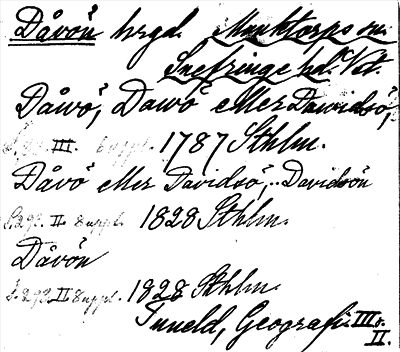 Dåvön hrgd. Munktorps sn.
Snefringe hd. Vst.
Dåwö, Dawö eller Dawidsö,
S. 292. III. Suppl. 1787 Sthlm.
Dåvö eller Davidsö, Davidsön
S. 292. II Suppl. 1828 Sthlm.
Dåvön
S. 292. II Suppl. 1828 Sthlm.
Tuneld, Geografi III o.
II.